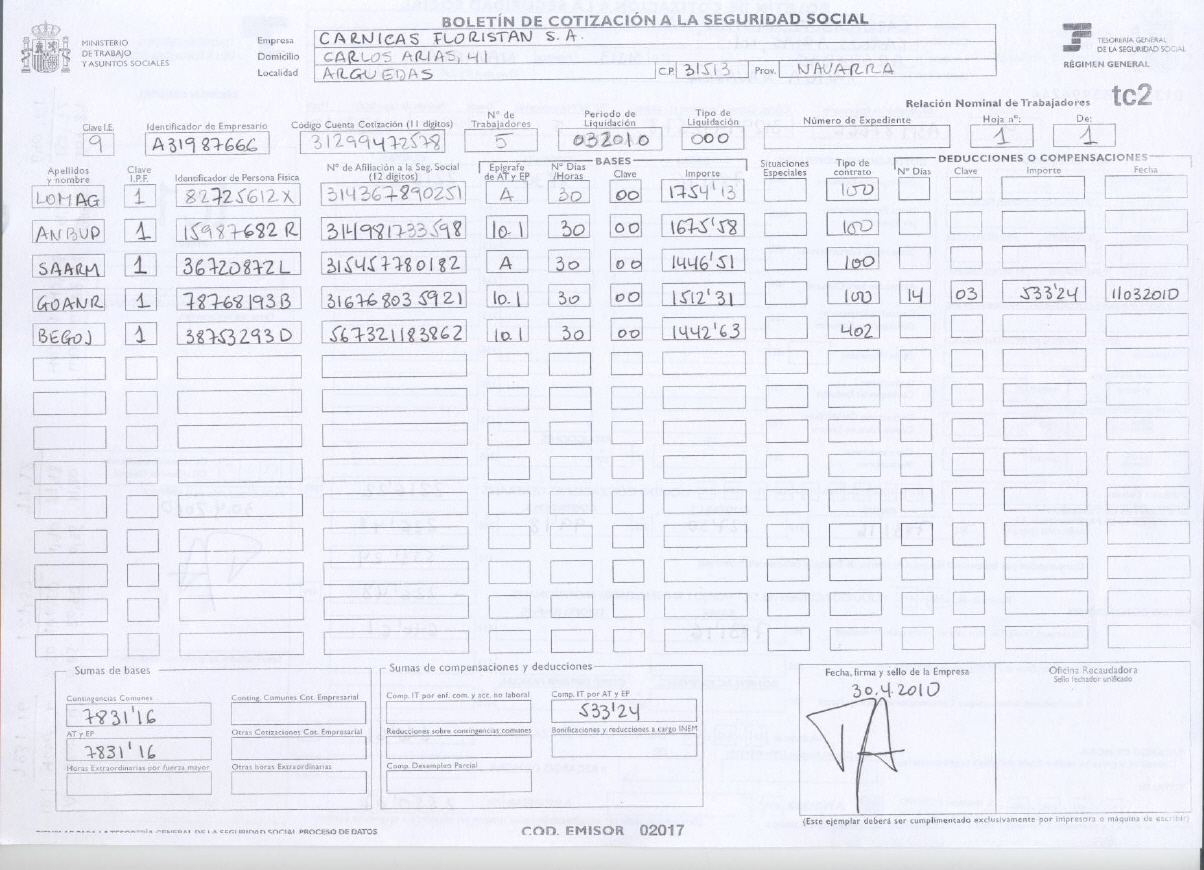 BOLETÍN DE COTIZACIÓN A LA SEGURIDAD SOCIAL
MINISTERIO
DE TRABAJO
Y ASUNTOS SOCIALES
Empresa CARNICAS FLORISTAN S.A.
Domicilio CARLOS ARIAS, 41
Localidad ARGUEDAS C.P. 31513 Prov. NAVARRA
TESORERÍA GENERAL
DE LA SEGURIDAD SOCIAL
RÉGIMEN GENERAL
Relación Nominal de Trabajadores tc2
Clave I.E. Identificador de Empresario Código Cuenta Cotización (11 dígitos) Nº de Trabajadores Periodo de Liquidación Tipo de Liquidación Número de Expediente Hoja nº: De:
9 A31987666 31299472578 5 032010 000 1 1
BASES DEDUCCIONES O COMPENSACIONES
Apellidos y nombre Clave I.P.F. Identificador de Persona Física Nº de Afiliación a la Seg. Social (12 dígitos) Epígrafe de AT y EP Nº Días /Horas Clave Importe Situaciones Especiales Tipo de contrato Nº Días Clave Importe Fecha
LOMAG 1 82725612X 314367890251 A 30 00 1754'13 100
ANBUP 1 15987682R 314981733598 10.1 30 00 1675'58 100
SAARM 1 36720872L 315457780182 A 30 00 1446'51 100
GOANR 1 78768193B 316768035921 10.1 30 00 1512'31 100 14 03 533'24 11032010
BEGOJ 1 38753293D 567321183862 10.1 30 00 1442'63 402
Sumas de bases
Contingencias Comunes Conting. Comunes Cot. Empresarial
7831'16
AT y EP Otras Cotizaciones Cot. Empresarial
7831'16
Horas Extraordinarias por fuerza mayor Otras horas Extraordinarias
Sumas de compensaciones y deducciones
Comp. IT por enf. com. y acc. no laboral Comp. IT por AT y EP
533'24
Reducciones sobre contingencias comunes Bonificaciones y reducciones a cargo INEM
Comp. Desempleo Parcial
Fecha, firma y sello de la Empresa
30.4.2010
Oficina Recaudadora
Sello fechador unificado
EJEMPLAR PARA LA TESORERÍA GENERAL DE LA SEGURIDAD SOCIAL PROCESO DE DATOS
COD. EMISOR 02017
(Este ejemplar deberá ser cumplimentado exclusivamente por impresora o máquina de escribir)